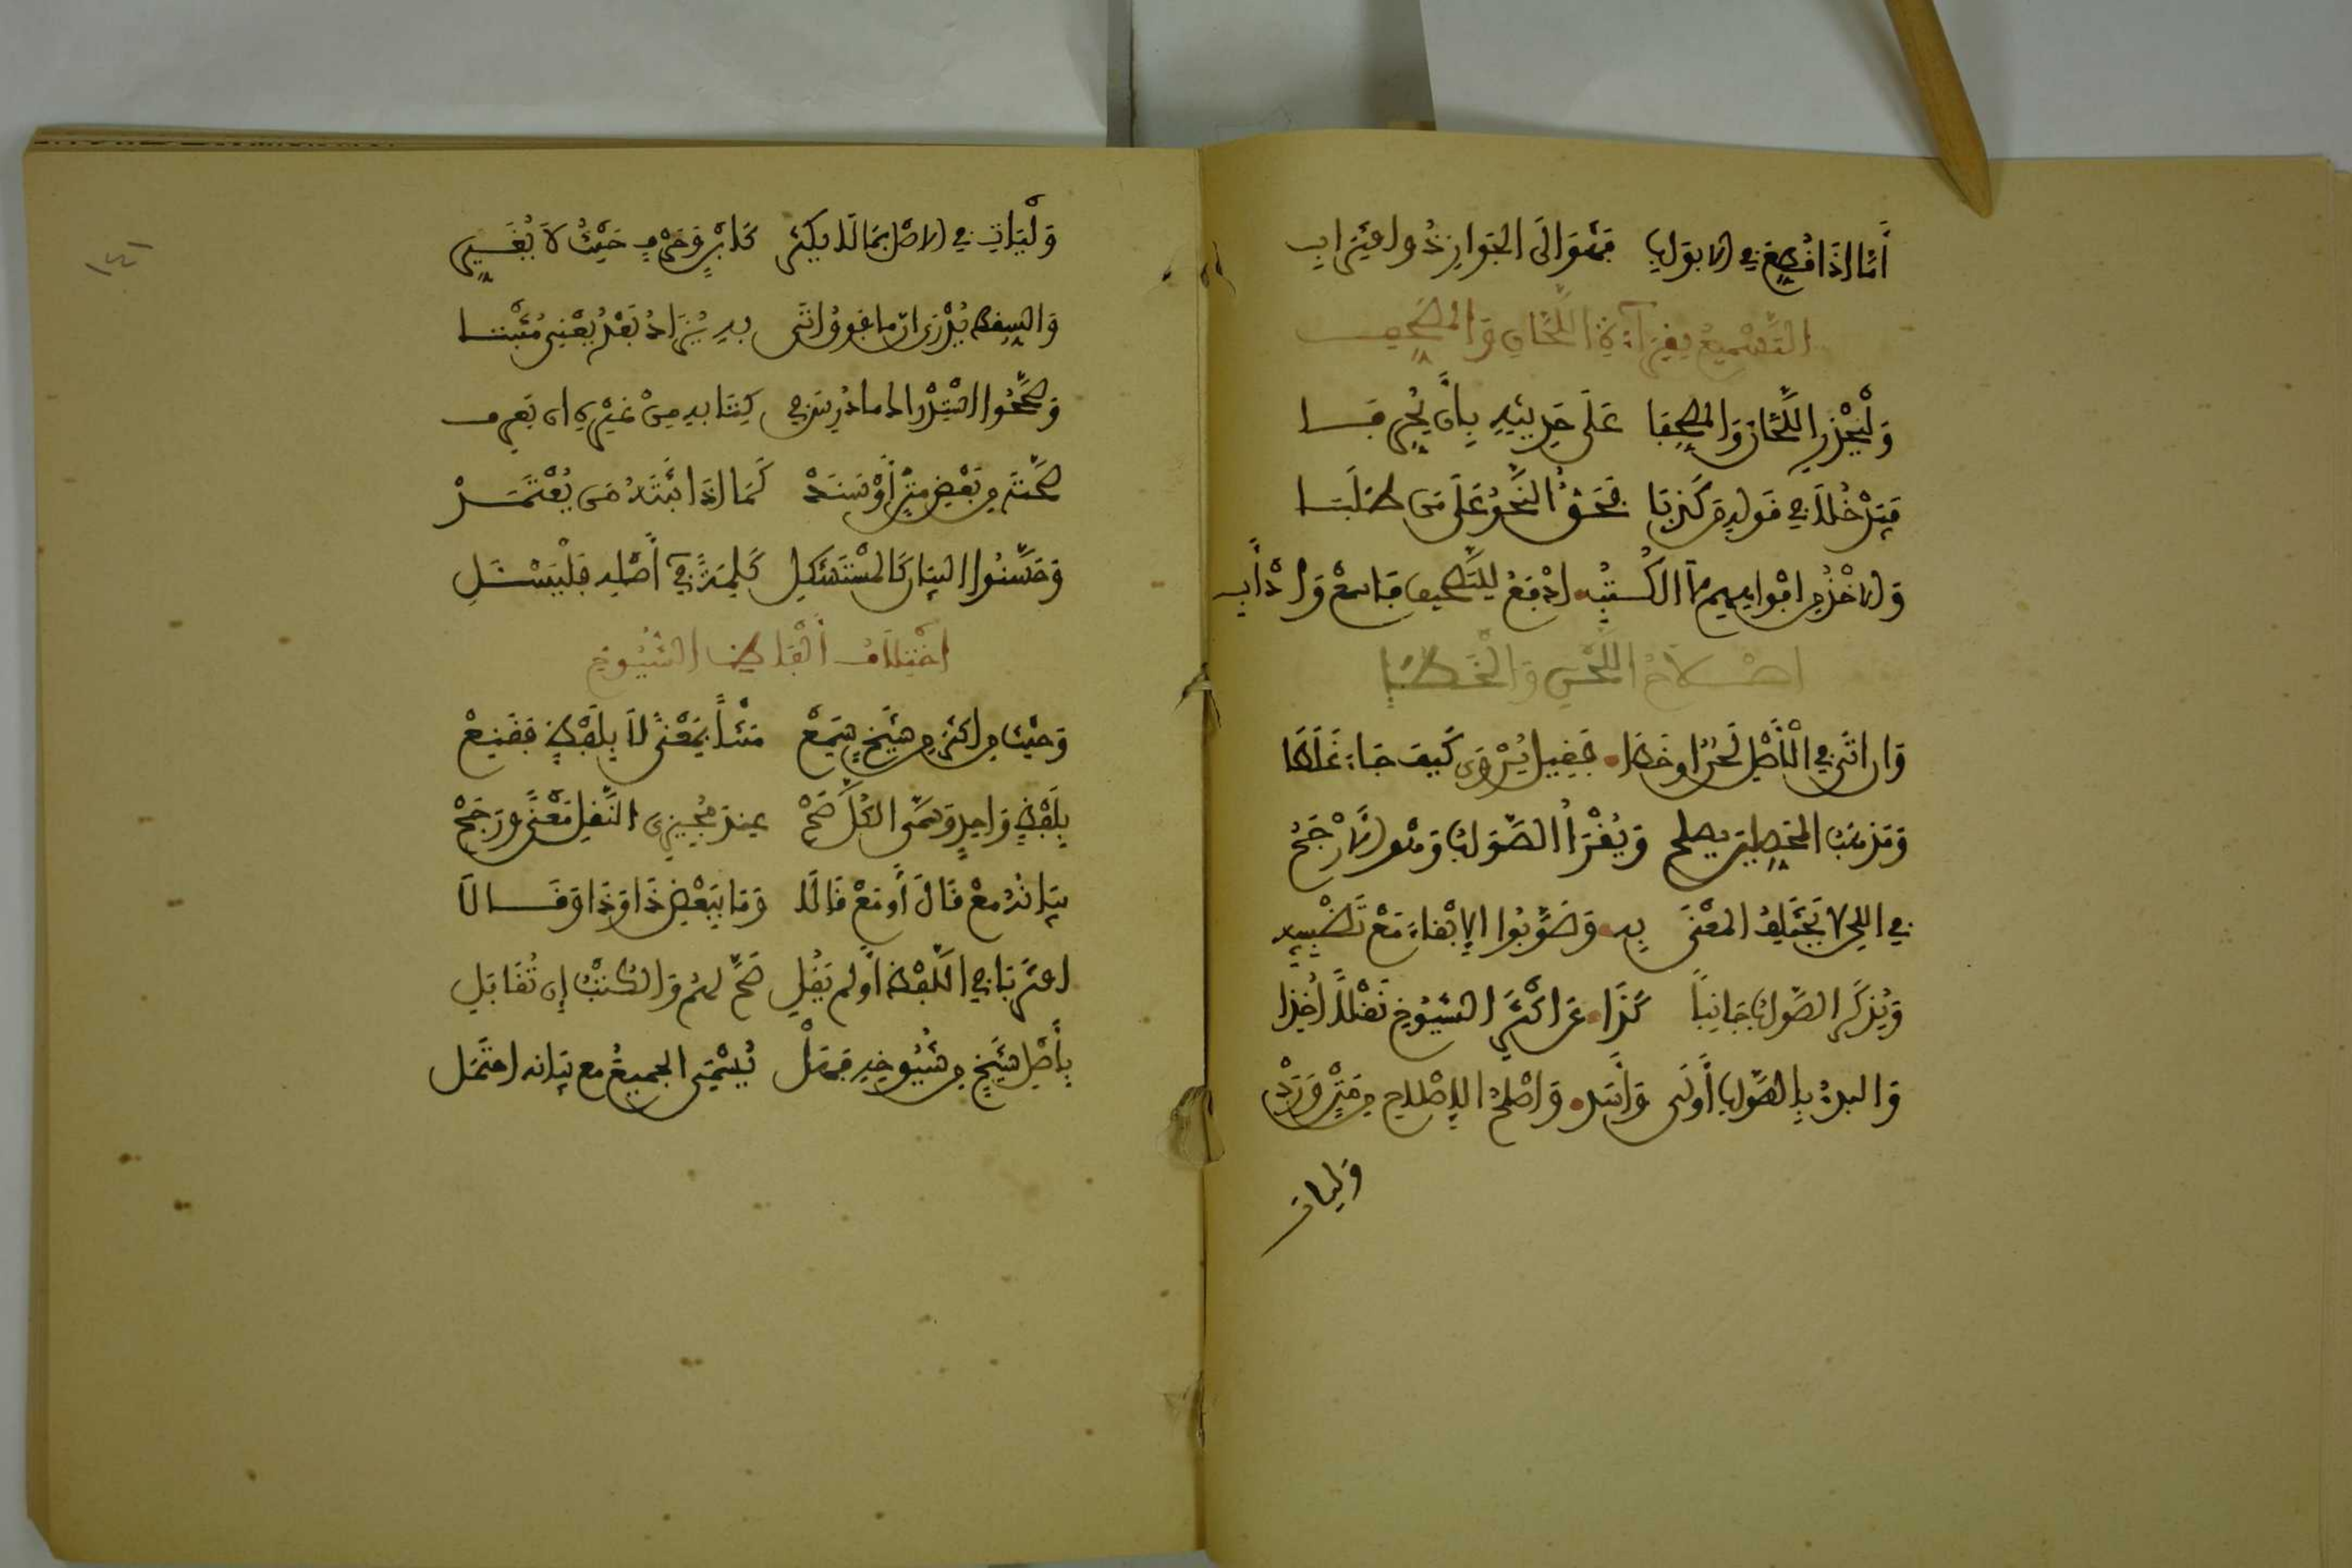 أَمَّا إِذَا قُطِّعَ فِي الْأَبْوَابِ فَهْوَ إِلَى الْجَوَازِ ذُو اقْتِرَابِ
التَّسْمِيعُ بِقِرَاءَةِ اللَّحَّانِ وَالْمُصَحِّفِ
وَلْيَحْذَرِ اللَّحَّانَ وَالْمُصَحِّفَا عَلَى حَدِيثِهِ بِأَنْ يُحَرِّفَا
فَيَدْخُلَا فِي قَوْلِهِ مَنْ كَذَبَا فَحَقٌّ النَّحْوُ عَلَى مَنْ طَلَبَا
وَالْأَخْذُ مِنْ أَفْوَاهِهِمْ لَا الْكُتُبِ أَدْفَعُ لِلتَّصْحِيفِ فَاسْمَعْ وَادْأَبِ
إِصْلَاحُ اللَّحْنِ وَالْخَطَإِ
وَإِنْ أَتَى فِي الْأَصْلِ لَحْنٌ أَوْ خَطَا فَقِيلَ يُرْوَى كَيْفَ جَاءَ غَلَطَا
وَمَذْهَبُ الْمُحَصِّلِينَ يُصْلَحُ وَيُقْرَأُ الصَّوَابُ وَهْوَ الْأَرْجَحُ
فِي اللَّحْنِ لَا يَخْتَلِفُ الْمَعْنَى بِهِ وَصَوَّبُوا الْإِبْقَاءَ مَعْ تَضْبِيبِهِ
وَيُذْكَرُ الصَّوَابُ جَانِبًا كَذَا عَنْ أَكْثَرِ الشُّيُوخِ نَقْلًا أُخِذَا
وَالْبَدْءُ بِالصَّوَابِ أَوْلَى وَأَسَدّْ وَأَصْلَحُ الْإِصْلَاحِ مِنْ مَتْنٍ وَرَدْ
وليات
١٤٦
وَلْيَاتِ فِي الْأَصْلِ بِمَا لَا يَكْثُرُ كَابْنٍ وَحَرْفٍ حَيْثُ لَا يُغَيِّرُ
وَالسَّقْطُ يُدْرَى أَنَّ مَا فَوْقُ أَتَى بِهِ يُزَادُ بَعْدُ يَعْنِي مُثْبَتَا
وَصَحَّحُوا اسْتِدْرَاكَ مَا دُرِسَ فِي كِتَابِهِ مِنْ غَيْرِهِ إِنْ يَعْرِفِ
صِحَّتَهُ مِنْ بَعْضِ مَتْنٍ أَوْ سَنَدْ كَمَا إِذَا ثَبَّتَهُ مَنْ يُعْتَمَدْ
وَحَسَّنُوا الْبَيَانَ كَالْمُسْتَشْكِلِ كَلِمَةً فِي أَصْلِهِ فَلْيَسْئَلِ
اخْتِلَافُ أَلْفَاظِ الشُّيُوخِ
وَحَيْثُ مِنْ أَكْثَرَ مِنْ شَيْخٍ سَمِعْ مَتْنًا بِمَعْنًى لَا بِلَفْظٍ فَقَنِعْ
بِلَفْظِ وَاحِدٍ وَسَمَّى الْكُلَّ صَحْ عِنْدَ مُجِيزِي النَّقْلِ مَعْنًى وَرَجَحْ
بَيَانُهُ مَعْ قَالَ أَوْ مَعْ قَالَا وَمَا بِبَعْضِ ذَا وَذَا وَقَالَا
اقْتَرَبَا فِي اللَّفْظِ أَوْ لَمْ يَقُلِ صَحَّ لَهُمْ وَالْكُتْبُ إِنْ تُقَابَلِ
بِأَصْلِ شَيْخٍ مِنْ شُيُوخِهِ فَهَلْ يُسَمِّي الْجَمِيعَ مَعْ بَيَانِهِ احْتَمَلْ